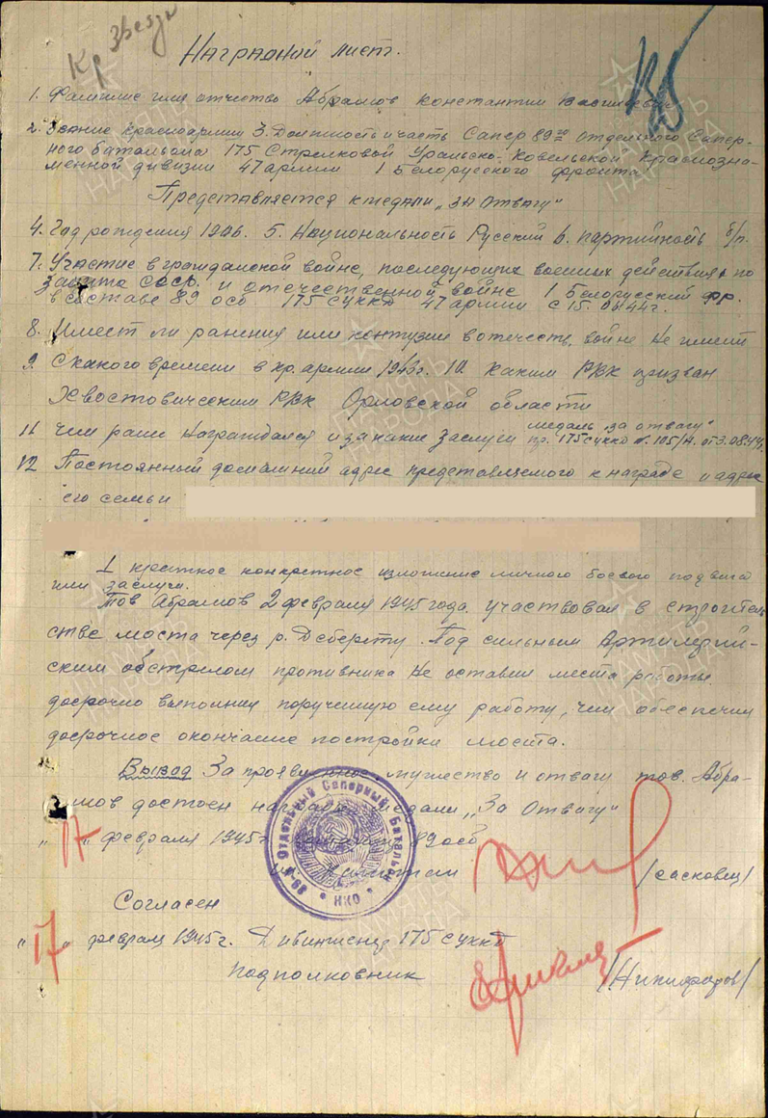 Кр Звезд
Наградной лист.
1. Фамилие имя отчество Абрамов Константин Васильевич
2. Звание Красноармеец 3. Должность и часть Сапер 89го отдельного Сапер-
ного батальона 175 Стрелковой Уральско-Ковельской Краснозна-
менной дивизии 47 армии 1 Белорусского фронта
Представляется к медали „За Отвагу"
4. Год рождения 1926. 5. Национальность Русский 6. партийность б/п.
7. Участие в гражданской войне, последующих военных действиях по
защите СССР. и отечественной войне 1 Белорусский фр.
в составе 89 осб 175 суккд 47 армии с 15.
8. Имеет ли ранения или контузии в отечеств. войне Не имеет
9. С какого времени в кр. армии 1943г. 10 Каким РВК призван
Хвостовическим РВК Орловской области
11 Чем ранее Награждался и за какие заслуги медаль „за отвагу"
пр. 175 суккд № 105/н. от 3.08.44.
12 Постоянный домашний адрес представляемого к награде и адрес
его семьи
I краткое конкретное изложение личного боевого подвига
или заслуги.
Тов Абрамов 2 февраля 1945 года. участвовал в строитель
стве моста через р. Под сильным Артиллерий-
ским обстрелом противника Не оставил места работы
досрочно выполнил порученную ему работу, чем обеспечил
досрочное окончание постройки моста.
Вывод За проявленное мужество и отвагу тов. Абра-
мов достоин медали „За Отвагу"
„17" февраля 1945г 89 осб
Капитан /Сасковец/
89-й Отдельный Саперный Батальон
НКО
Согласен
„17" февраля 1945г. Дивинженер 175 суккд
Подполковник /Никифоров/
ПАМЯТЬ НАРОДА